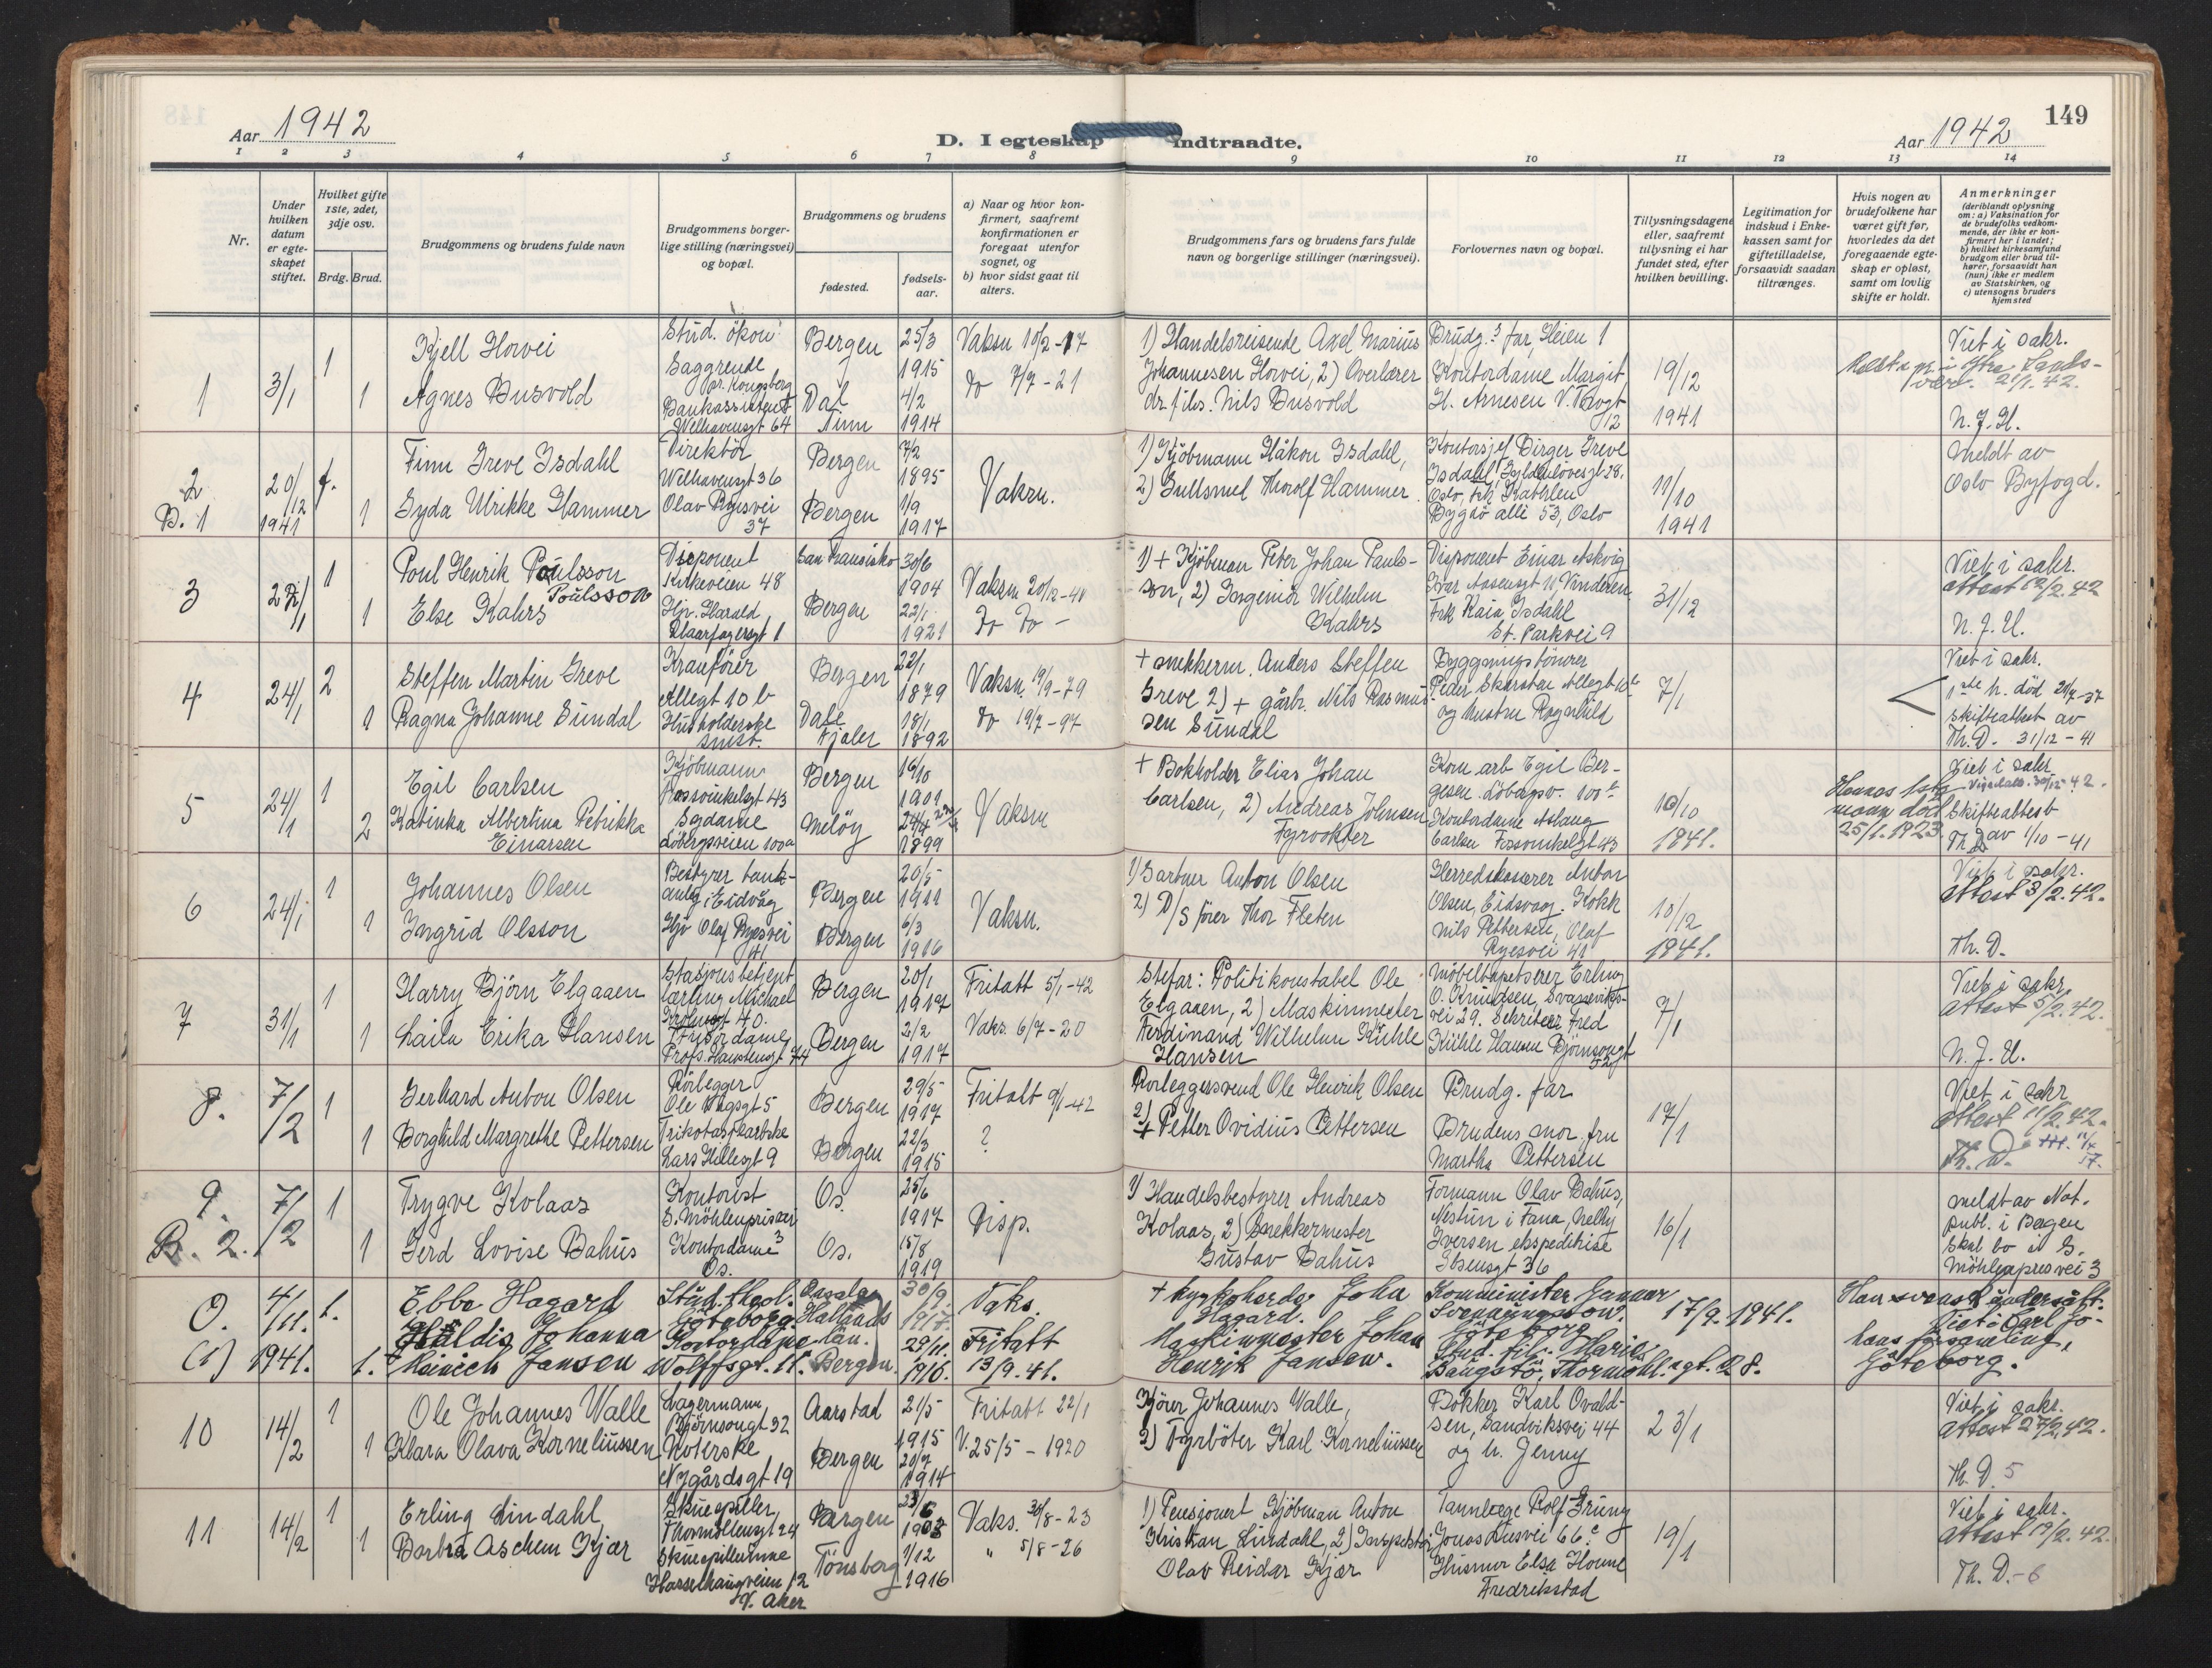 149
Aar 1942
D. I egteskap indtraadte.
Aar 1942
1 2 3 4 5 6 7 8 9 10 11 12 13 14
Nr.
Under hvilken datum er egteskapet stiftet.
Hvilket gifte 1ste, 2det, 3dje osv.
Brdg. Brud.
Brudgommens og brudens fulde navn
Brudgommens borgerlige stilling (næringsvei) og bopæl.
Brudgommens og brudens
fødested.
fødselsaar.
a) Naar og hvor konfirmert, saafremt konfirmationen er foregaat utenfor sognet, og
b) hvor sidst gaat til alters.
Brudgommens fars og brudens fars fulde navn og borgerlige stillinger (næringsvei).
Forlovernes navn og bopæl.
Tillysningsdagene eller, saafremt tillysning ei har fundet sted, efter hvilken bevilling.
Legitimation for indskud i Enkekassen samt for giftetilladelse, forsaavidt saadan tiltrænges.
Hvis nogen av brudefolkene har været gift før, hvorledes da det foregaaende egteskap er opløst, samt om lovlig skifte er holdt.
Anmerkninger
(deriblandt oplysning om: a) Vaksination for de brudefolks vedkommende, der ikke er konfirmert her i landet; b) hvilket kirkesamfund brudgom eller brud tilhører, forsaavidt han (hun) ikke er medlem av Statskirken, og c) utensogns bruders hjemsted
1
3/1
1
1
Kjell Horvei
Agnes Busvold
Stud. ökon
Saggrende
pr. Kongsberg
Bankassistent
Welhavensgt 64
Bergen
Dal
Tinn
25/3
1915
4/2
1914
Vaksn 10/2-17
do 7/7-21
1) Handelsreisende Axel Marius
Johannesen Horvei, 2) Overlærer
dr. filos. Nils Busvold
Brudg.s far, Heien 1
Kontordame Margit
H. Arnesen V. Vogt
12
19/12
1941
21/1. 42.
Viet i sakr.
N. J. H.
2
B. 1
20/12
1941
1.
1
Finn Greve Isdahl
Gyda Ulrikke Hammer
Direktör
Welhavensgt 36
Olav Ryesvei
37
Bergen
Bergen
7/2
1895
1/9
1917
Vaksn.
1) Kjöbmann Håkon Isdahl,
2) Gullsmed Thorolf Hammer.
Kontorsjef Birger Greve
Isdahl, Gyldenlövesgt 28,
Oslo, frk Kathrlen
Bygdö allé 53, Oslo
11/10
1941
Meldt av
Oslo Byfogd.
3
1
1
Poul Henrik Poulsson
Poulsson
Else Kahrs
Disponent
Kirkeveien 48
Hjv. Harald
Haarfagersgt 1
San Fransisko
Bergen
30/6
1904
22/1
1921
Vaksn 20/12-41
do do -
1) + Kjöbman Peter Johan Pauls-
son, 2) Ingeniör Wilhelm
Kahrs
Disponent Einar Askvig
Ivar Aasensgt 11, Vinderen,
Frk Kaia Isdahl
St. Parkvei 9
31/12
Viet i sakr.
attest 12/2. 42
N. J. H.
4
24/1
2
1
Steffen Martin Greve
Ragna Johanne Sundal
Kranförer
Allegt 10 b
Husholderske
smst.
Bergen
Dale
Fjaler
22/1
1879
18/1
1892
Vaksn. 19/9-79
do 19/7-97
+ snekkerm. Anders Steffen
Greve 2) + gårbr. Nils Rasmus-
sen Sundal
Bygningstömrer
Peder Skarsten Allegt 10 b
og hustru Ragnhild
7/1
1ste h. död 21/7-37
skifteattest av
Th. D. 31/12-41
Viet i sakr.
5
24/1
1
2
Egil Carlsen
Katinka Albertina Petrikka
Einarsen
Kjöbmann
Fossvinkelsgt 43
Sydame
Löbergsveien 100a
Bergen
Melöy
16/10
1901
24/4
1899
Vaksn
+ Bokholder Elias Johan
Carlsen, 2) Andreas Johnsen
Fyrvokter
Korn.arb Egil Ber-
gesen. Löbergsv. 100 a
Kontordame Aslaug
Carlsen Fossvinkelsgt 43
10/10
1941.
Hennes 1ste
mann död
25/1. 1923.
Viet i sakr
Skifteattest
Th. D. av 1/10-41
6
24/1
1
1
Johannes Olsen
Ingrid Olsson
Bestyrer tank-
anlg i Eidvåg
Hjv Olaf Ryesvei
41
Bergen
Bergen
20/5
1911
6/3
1916
Vaksn.
1) Gartner Anton Olsen
2) D/S förer Thor Fleten
Herredskasserer Anton
Olsen, Eidsvaag. Kokk
Nils Pettersen, Olaf
Ryesvei 41
10/12
1941.
Viet i sakr.
attest 3/2. 42.
Th. D.
7
31/1
1
1
Harry Björn Elgaaen
Laila Erika Hansen
Stasjonsbetjent
lærling Michael
Krohnsgt 40.
Frisördame,
Prof. Hansteensgt 74
Bergen
Bergen
20/1
1917
2/2
1917
Fritatt 5/1-42
Vaks. 6/7-20
Stefar: Politikonstabel Ole
Elgaaen, 2) Maskinmester
Ferdinand Wilhelm Kühle
Hansen
Möbeltapetserer Erling
O. Knudsen, Svaneviks-
vei 29. Skribent Fred
Kühle Hansen Björnsonsgt
52
7/1
Viet i sakr.
attest 5/2. 42.
N. J. H.
8.
7/2
1
1
Gerhard Anton Olsen
Borghild Margrethe Pettersen
Rörlegger
Ole Vigsgt 5
Trikotasjearbeiske
Lars Hillesgt 9
Bergen
Bergen
29/5
1917
22/3
1915
Fritatt 9/1-42
?
Rörleggersvend Ole Henrik Olsen
2) + Petter Ovidius Pettersen
Brudg. far
Brudens mor, fru
Martha Pettersen
17/1
Viet i sakr
attest 11/2. 42.
Th. D.
9.
B. 2.
7/2
1
1
Trygve Kolaas
Gerd Lovise Bahus
Kontorist
S. Möhlenprisvei
3
Kontordame
Os.
Os.
Os.
25/6
1917
15/8
1919
Disp.
1) Handelsbestyrer Andreas
Kolaas, 2) Snekkermester
Gustav Bahus
Formann Olav Bahus,
Nestun i Fana, Nelly
Iversen ekspeditrise
Ibsensgt 36
16/1
Meldt av Not.
publ. i Bergen
Skal bo i S.
Möhlenprisvei 3
O.
(1)
4/11.
1941.
1.
1.
Ebbe Hagard
Haldis Johanna
Meinich Jansen
Stud. theol.
Göteborg.
Kontordame
Wolffsgt. 11.
Onsala
Hallands
län.
Bergen.
30/9
29/11.
1916.
Vaks.
Fritatt
13/9. 41.
+ kyrkoherde John
Hagard.
Maskinmester Johan
Henrik Jansen.
Komminister Gunnar
Svenningsson.
Göteborg
Stud. fil. Marie
Baugstö, Thormöhl.sgt. 28.
17/9. 1941.
Han svensk undersått.
Viet i Carl Jo-
hans församling,
Göteborg.
10
14/2
1
1
Ole Johannes Walle
Klara Olava Korneliussen
Lagermann,
Björnsonsgt 32
Noterske
Nygårdsgt 19
Aarstad
Bergen
21/5
1915
20/7
1914
Fritatt 22/1
V. 25/5-1920
Kjörer Johannes Walle,
2) Fyrböter Karl Korneliussen
Bökker Karl Osvald-
sen, Sandviksvei 44
og h. Jenny
23/1
Viet i sakr.
attest 27/2. 42.
Th. D. 5
11
14/2
1
1
Erling Lindahl
Barbra Aschem Kjær
Skuespiller,
Thormöllensgt 24
Skuespillerinne
Hasselhaugveien 12
V. Aker
Bergen
Tönsberg
23/6
1903
1/12
1916
Vaks. 30/8-23
" 5/8-26
1) Pensjonert Kjöbman Anton
Kristian Lindahl, 2) Inspektör
Olav Reidar Kjær
Tannlæge Rolf Grung
Jonas Liesvei 66 c
Husmor Elsa Honne
Fredrikstad
19/1
Viet i sakr.
attest 19/2. 42.
Th. D. - 6